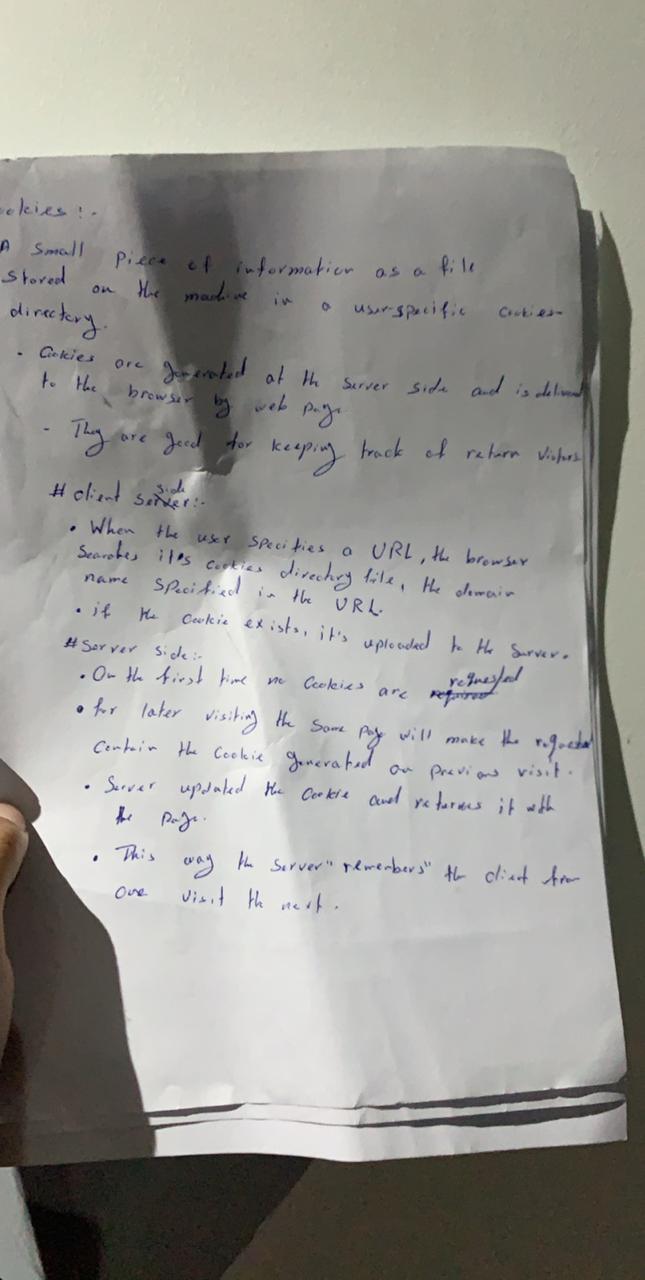 ookies :-
A small piece of information as a file
stored on the machine in a user-specific cookies
directory.
- Cookies are generated at the server side and is delivered
to the browser by web page
- They are good for keeping track of return visitors
# client side server:-
• When the user specifies a URL, the browser
searches it's cookies directory file, the domain
name specified in the URL.
• if the cookie exists, it's uploaded to the server.
# Server side:-
• On the first time no cookies are required requested
• for later visiting the same page will make the requested
contain the cookie generated on previous visit.
• Server updated the cookie and returnes it with
the page.
• This way the server "remembers" the client from
one visit the next.